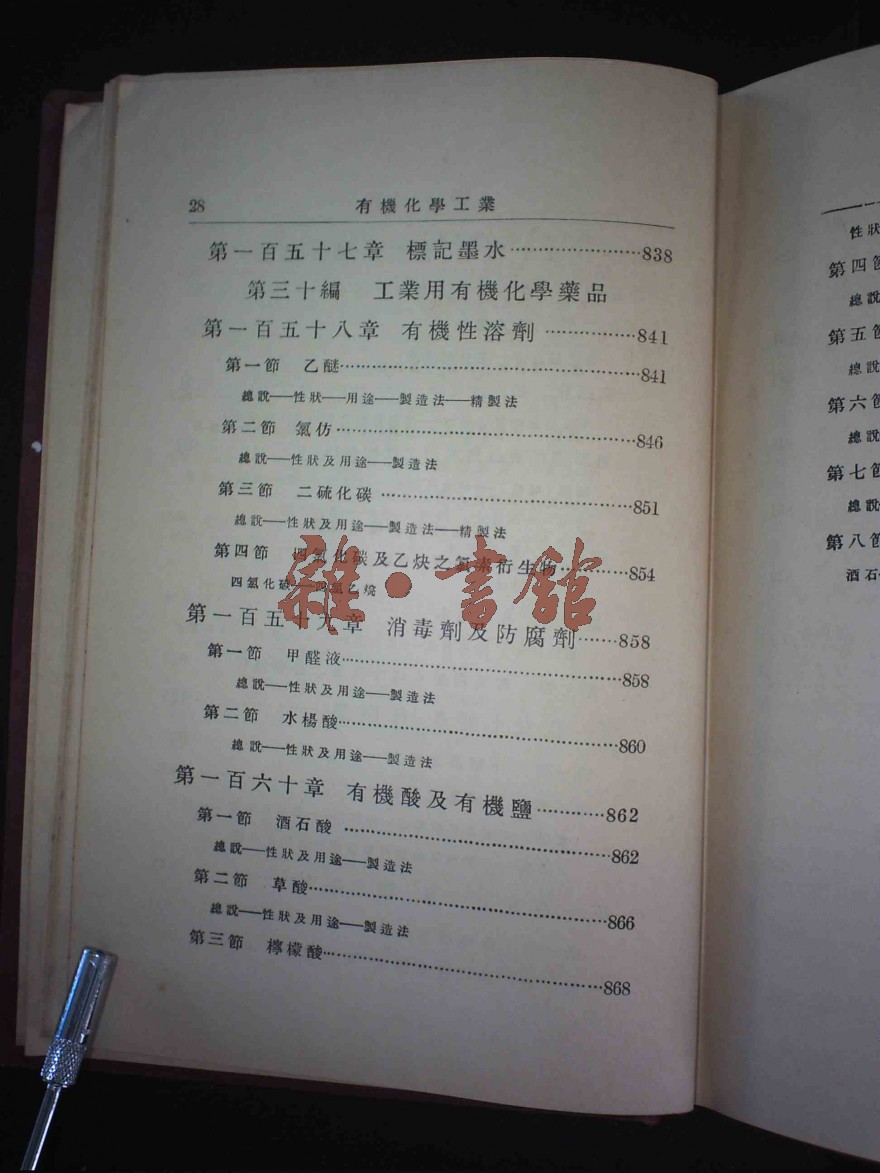 28 有機化學工業
第一百五十七章 標記墨水……………………838
第三十編 工業用有機化學藥品
第一百五十八章 有機性溶劑………………841
第一節 乙醚……………………………………………841
總說──性狀──用途──製造法──精製法
第二節 氯仿……………………………………………846
總說──性狀及用途──製造法
第三節 二硫化碳……………………………………851
總說──性狀及用途──製造法──精製法
第四節 四氯化碳及乙炔之氯素衍生物…………854
四氯化碳──四氯乙烷
第一百五十九章 消毒劑及防腐劑……858
第一節 甲醛液…………………………………………858
總說──性狀及用途──製造法
第二節 水楊酸…………………………………………860
總說──性狀及用途──製造法
第一百六十章 有機酸及有機鹽…………862
第一節 酒石酸…………………………………………862
總說──性狀及用途──製造法
第二節 草酸……………………………………………866
總說──性狀及用途──製造法
第三節 檸檬酸…………………………………………868
雜·書館
性狀
第四節
總說
第五節
總說
第六節
總說
第七節
總說
第八節
酒石